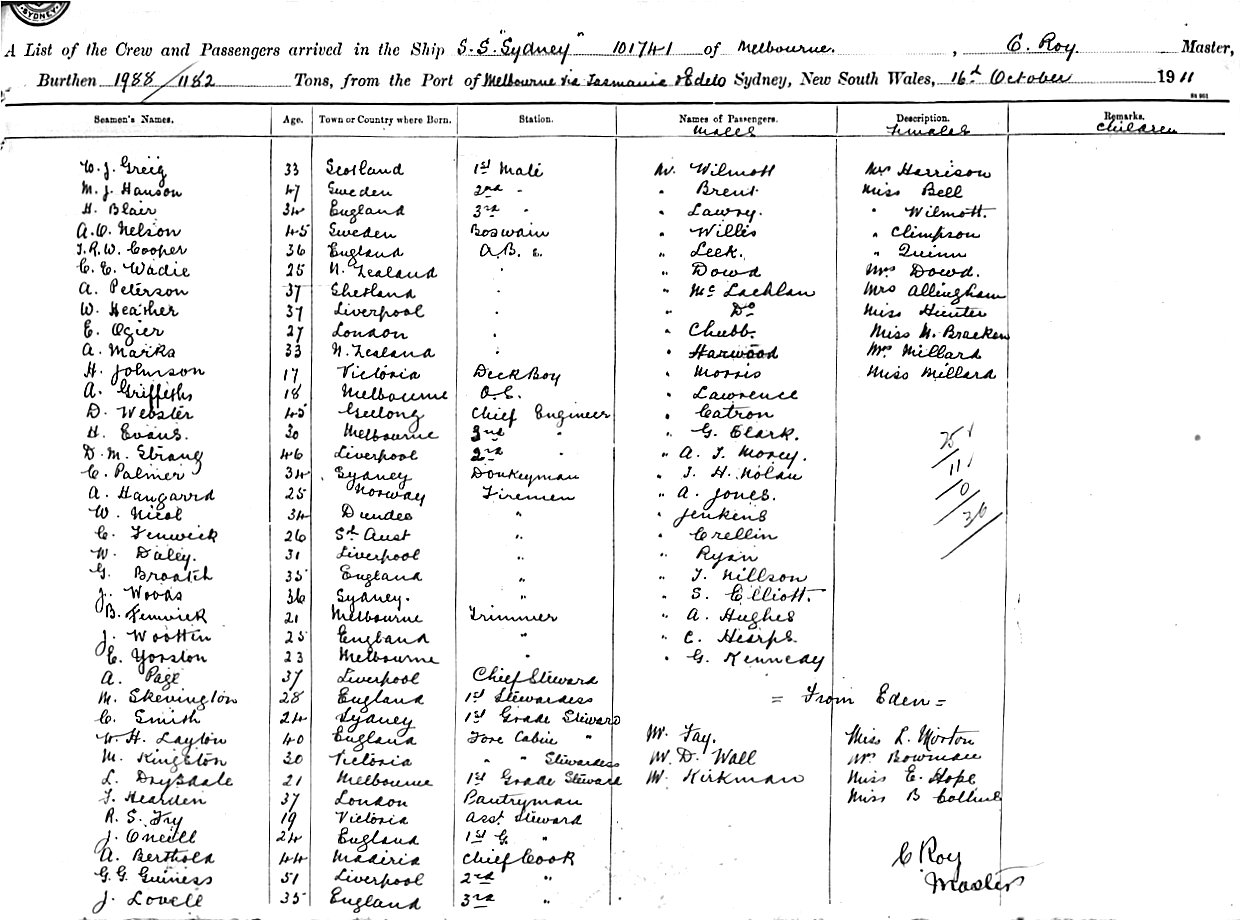 SYDNEY
A List of the Crew and Passengers arrived in the Ship S.S. "Sydney" 101741 of Melbourne. , C. Roy Master,
Burthen 1988/1182 Tons, from the Port of Melbourne via Tasmania & Edeto Sydney, New South Wales, 16th October 1911
Seamen's Names. Age. Town or Country where Born. Station. Names of Passengers. Description. Remarks.
Males Females Children
W. J. Greig 33 Scotland 1st Mate Mr. Wilmott Mrs Harrison
M. J. Hanson 47 Sweden 2nd " " Brent Miss Bell
H. Blair 34 England 3rd " " Lawry. " Wilmott.
A. O. Nelson 45 Sweden Boswain " Willis " Climpson
T. R. W. Cooper 36 England A.B.s. " Leek. " Quinn
C. E. Wadie 25 N. Zealand " " Dowd Mrs Dowd.
A. Peterson 37 Shetland " " McLachlan Mrs Allingham
W. Heather 37 Liverpool " " Do Miss Hunter
E. Ogier 27 London " " Chubb. Miss M. Bracken
A. Marks 33 N. Zealand " " Harwood Mrs Millard
H. Johnson 17 Victoria Deck Boy " Morris Miss Millard
A. Griffiths 18 Melbourne O.S. " Lawrence
D. Webster 45 Geelong Chief Engineer " Catron
H. Evans. 30 Melbourne 3rd " " G. Clark. 25
D. M. Strang 46 Liverpool 2nd " " A. J. Morey. 11
C. Palmer 34 Sydney Donkeyman " J. H. Nolan 0
A. Hangarrd 25 Norway Firemen " A. Jones. 36
W. Nicol 34 Dundee " " Jenkens
C. Fenwick 26 Sth Aust " " Crellin
W. Daley. 31 Liverpool " " Ryan
G. Broatch 35 England " " T. Nillson
J. Woods 36 Sydney. " " S. Elliott.
B. Fenwick 21 Melbourne Trimmer " A. Hughes
J. Wootten 25 England " " C. Hearps.
E. Yorston 23 Melbourne " " G. Kennedy
A. Page 37 Liverpool Chief Steward
M. Skevington 28 England 1st Stewardess = From Eden =
C. Smith 24 Sydney 1st Grade Steward
W. H. Layton 40 England Fore Cabin " Mr. Fay. Miss L. Morton
M. Kingston 30 Victoria " " Stewardess Mr. D. Wall Mrs Bowman
L. Drysdale 21 Melbourne 1st Grade Steward Mr. Kirkman Miss E. Hope
T. Hearden 37 London Pantryman Miss B Collins
R. S. Fry 19 Victoria Asst Steward
J. Oneill 24 England 1st G. "
A. Berthold 44 Madiria Chief Cook C Roy
G. G. Guiness 51 Liverpool 2nd " Master
J. Lovell 35 England 3rd "